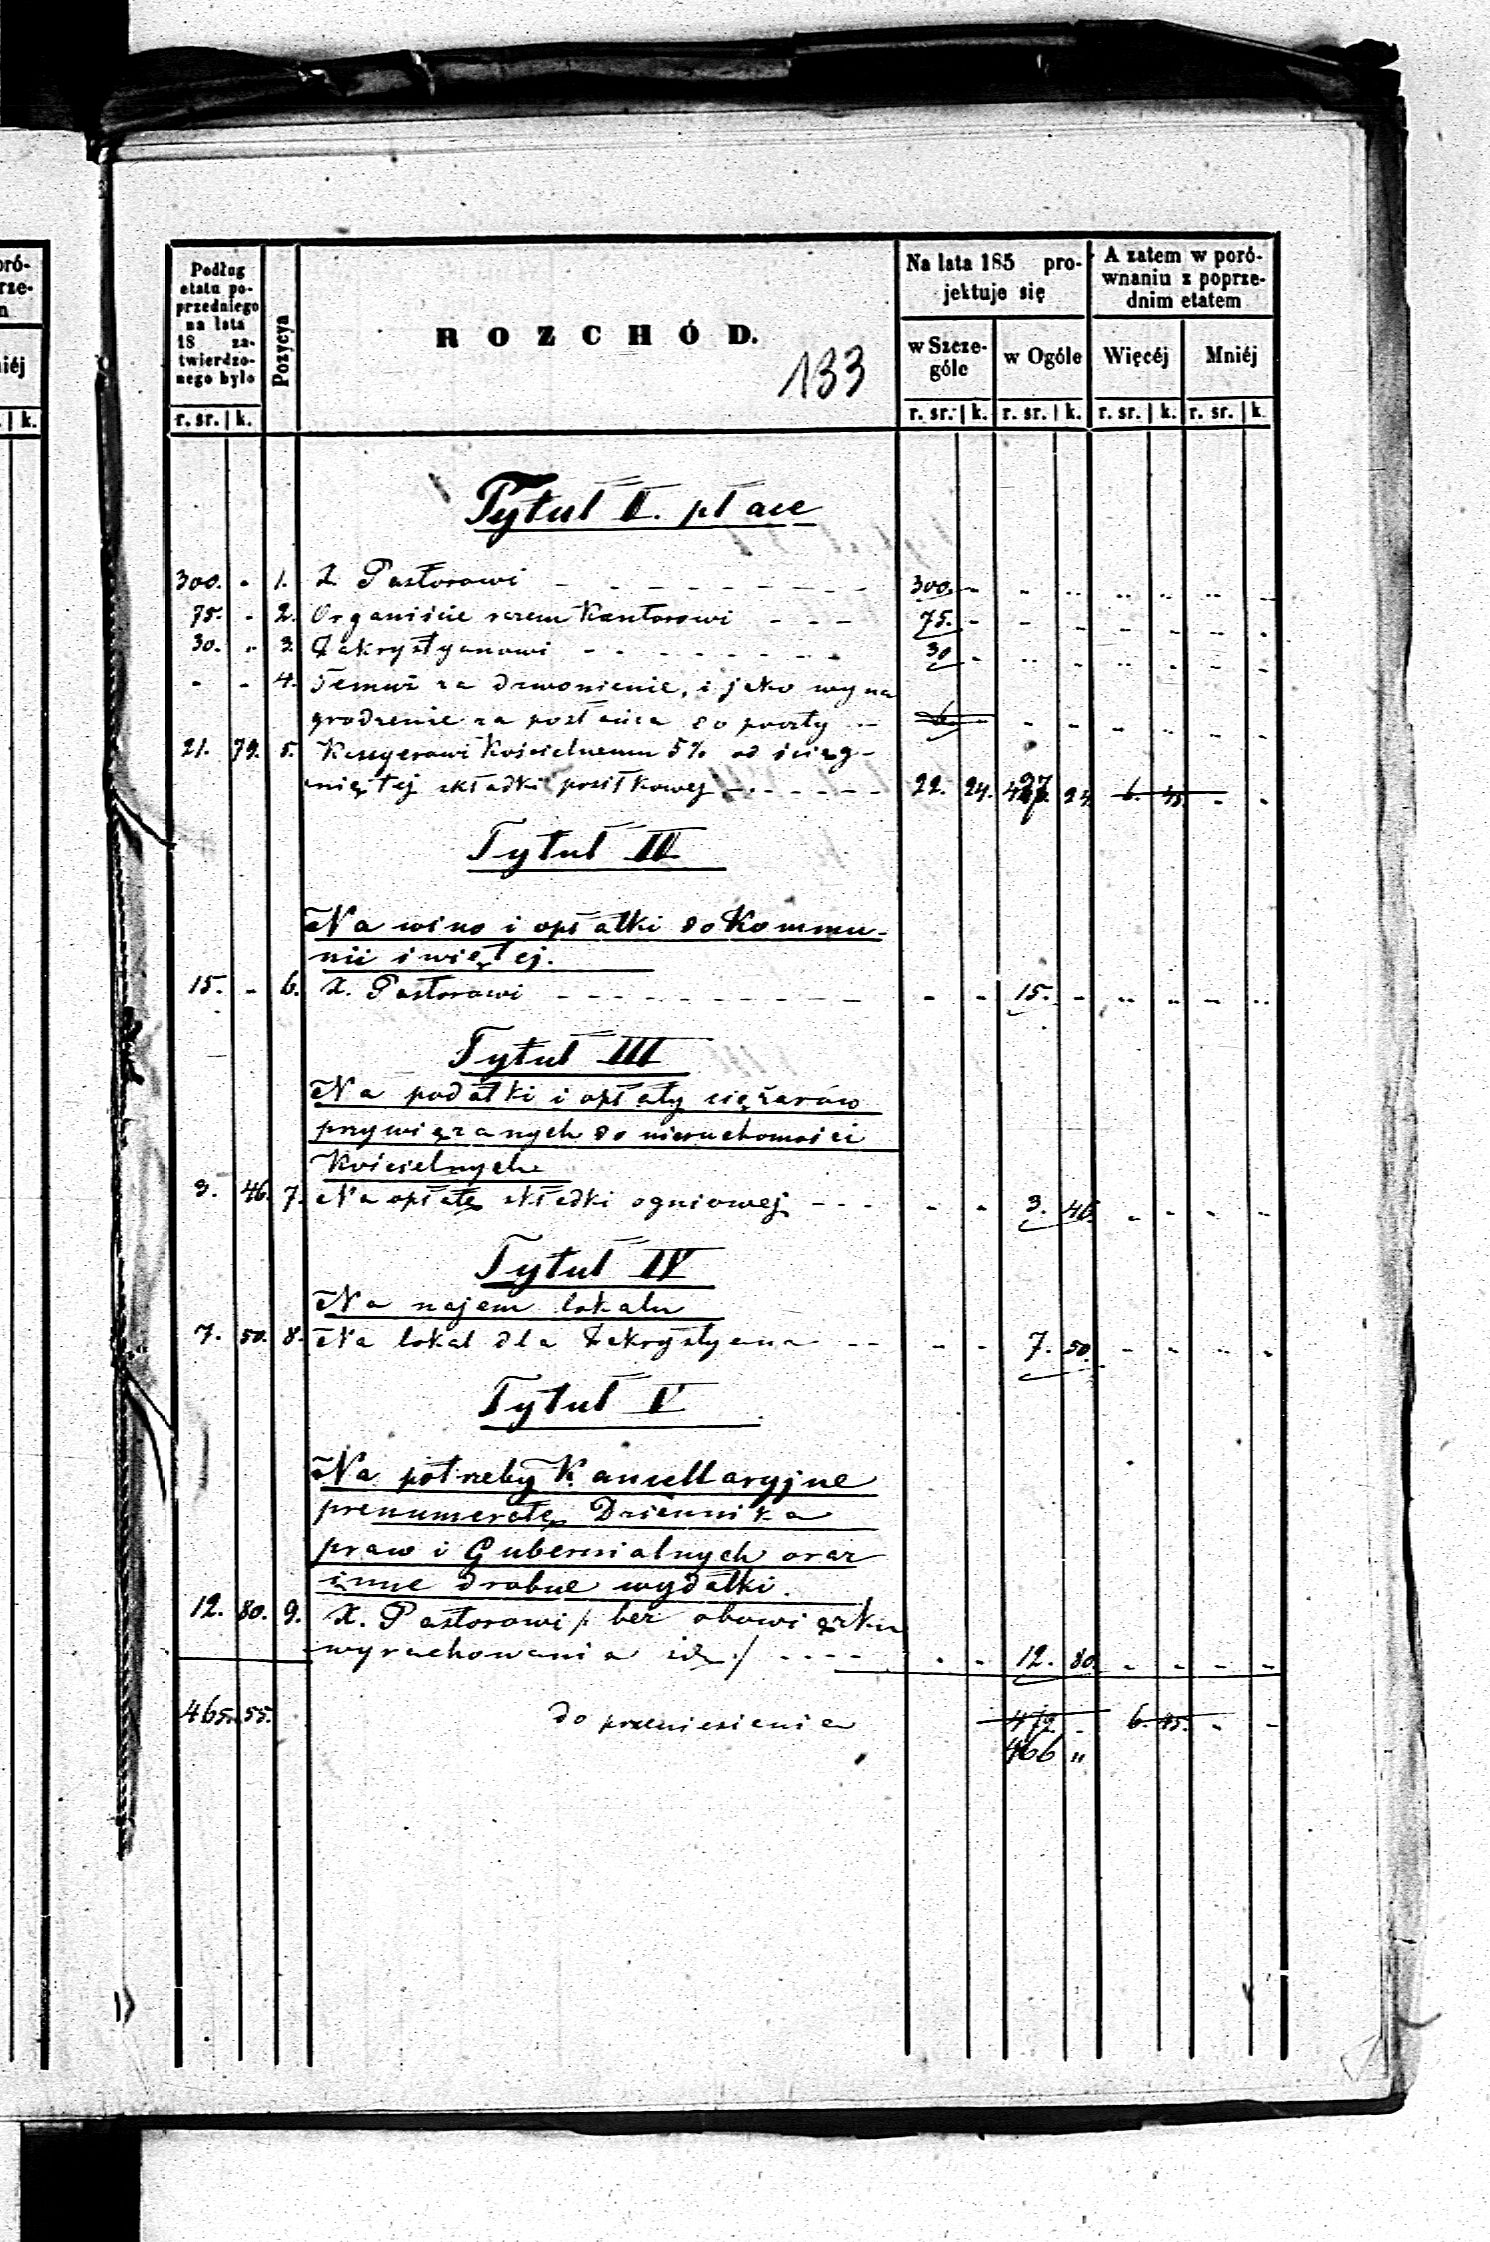 oró-
rze-
n
niéj
k.
Podług
etatu po-
przedniego
na lata
18 za-
twierdzo-
nego było
r. sr. k.
Pozycya
ROZCHÓD.
133
Na lata 185 pro-
jektuje się
w Szcze-
góle
w Ogóle
r. sr. k. r. sr. k.
A zatem w poró-
wnaniu z poprze-
dnim etatem
Więcéj Mniéj
r. sr. k. r. sr. k.
Tytuł I. płace
300. - 1. X. Pastorowi 300. -
75. - 2. Organiście razem Kantorowi 75. -
30. - 3. Zakrystyanowi 30 -
- - 4. Temuż za dzwonienie, i jako wyna
grodzenie za posłańca do poczty 6. -
21. 79. 5. Kassyerowi Kościelnemu 5% od ściąg-
niętej składki posiłkowej 22. 24. 427. 24 6. 45 - -
Tytuł II
Na wino i opłatki do Kommu-
nii świętej.
15. - 6. X. Pastorowi - - 15. -
Tytuł III
Na podatki i opłaty ciężarów
przywiązanych do nieruchomości
Kościelnych
3. 46. 7. Na opłatę składki ogniowej - - 3. 46.
Tytuł IV
Na najem lokalu
7. 50. 8. Na lokal dla Zakrystyana - - 7. 50.
Tytuł V
Na potrzeby Kancellaryjne
prenumeratę Dziennika
praw i Gubernialnych oraz
inne drobne wydatki.
12. 80. 9. X. Pastorowi /: bez obowiązku
wyrachowania się :/ - - 12. 80.
465. 55. do przeniesienia 472 - 6. 45. - -
466 "